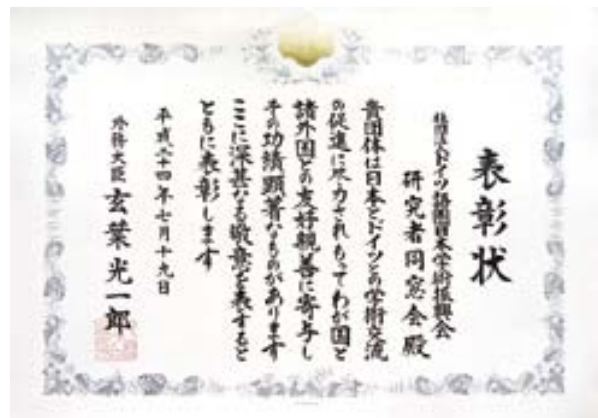 表彰状
社団法人ドイツ語圏日本学術振興会
研究者同窓会殿
貴団体は日本とドイツとの学術交流
の促進に尽力されもってわが国と
諸外国との友好親善に寄与し
その功績顕著なものがあります
ここに深甚なる敬意を表すると
ともに表彰します
平成二十四年七月十九日
外務大臣 玄葉光一郎